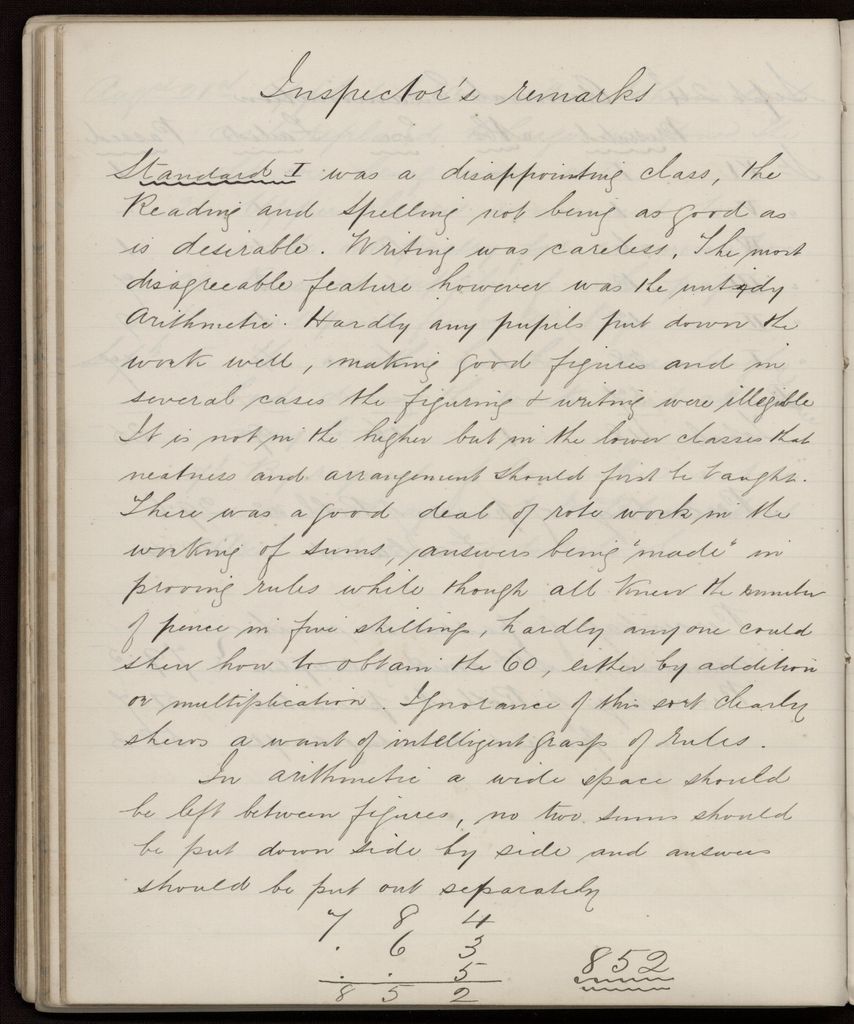 Inspector's remarks
Standard I was a disappointing class, the
Reading and Spelling not being as good as
is desirable. Writing was careless. The most
disagreeable feature however was the untidy
Arithmetic. Hardly any pupils put down the
work well, making good figures and in
several cases the figuring & writing were illegible
It is not in the higher but in the lower classes that
neatness and arrangement should first be taught.
There was a good deal of rote work in the
working of sums, answers being "made" in
proving rules while though all knew the number
of pence in five shillings, hardly anyone could
shew how to obtain the 60, either by addition
or multiplication. Ignorance of this sort clearly
shews a want of intelligent grasp of rules.
In arithmetic a wide space should
be left between figures, no two sums should
be put down side by side and answers
should be put out separately
7 8 4
. 6 3
. . 5
8 5 2
852